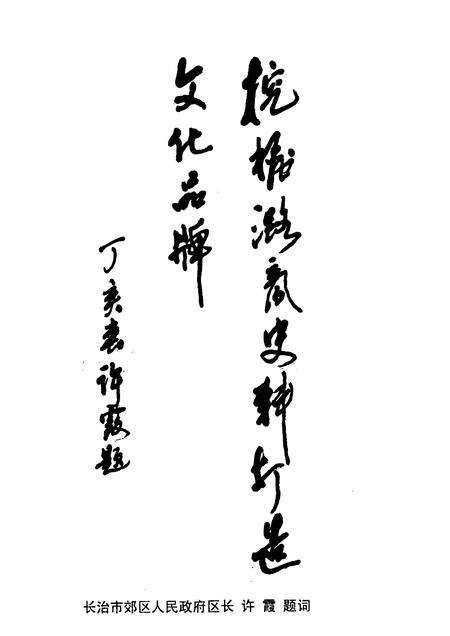 挖掘潞商史料打造
文化品牌
丁亥春许霞题
长治市郊区人民政府区长 许 霞 题词